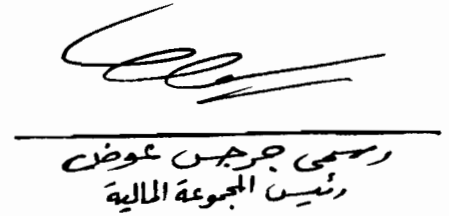 رسمى جرجس عوض
رئيس المجموعة المالية